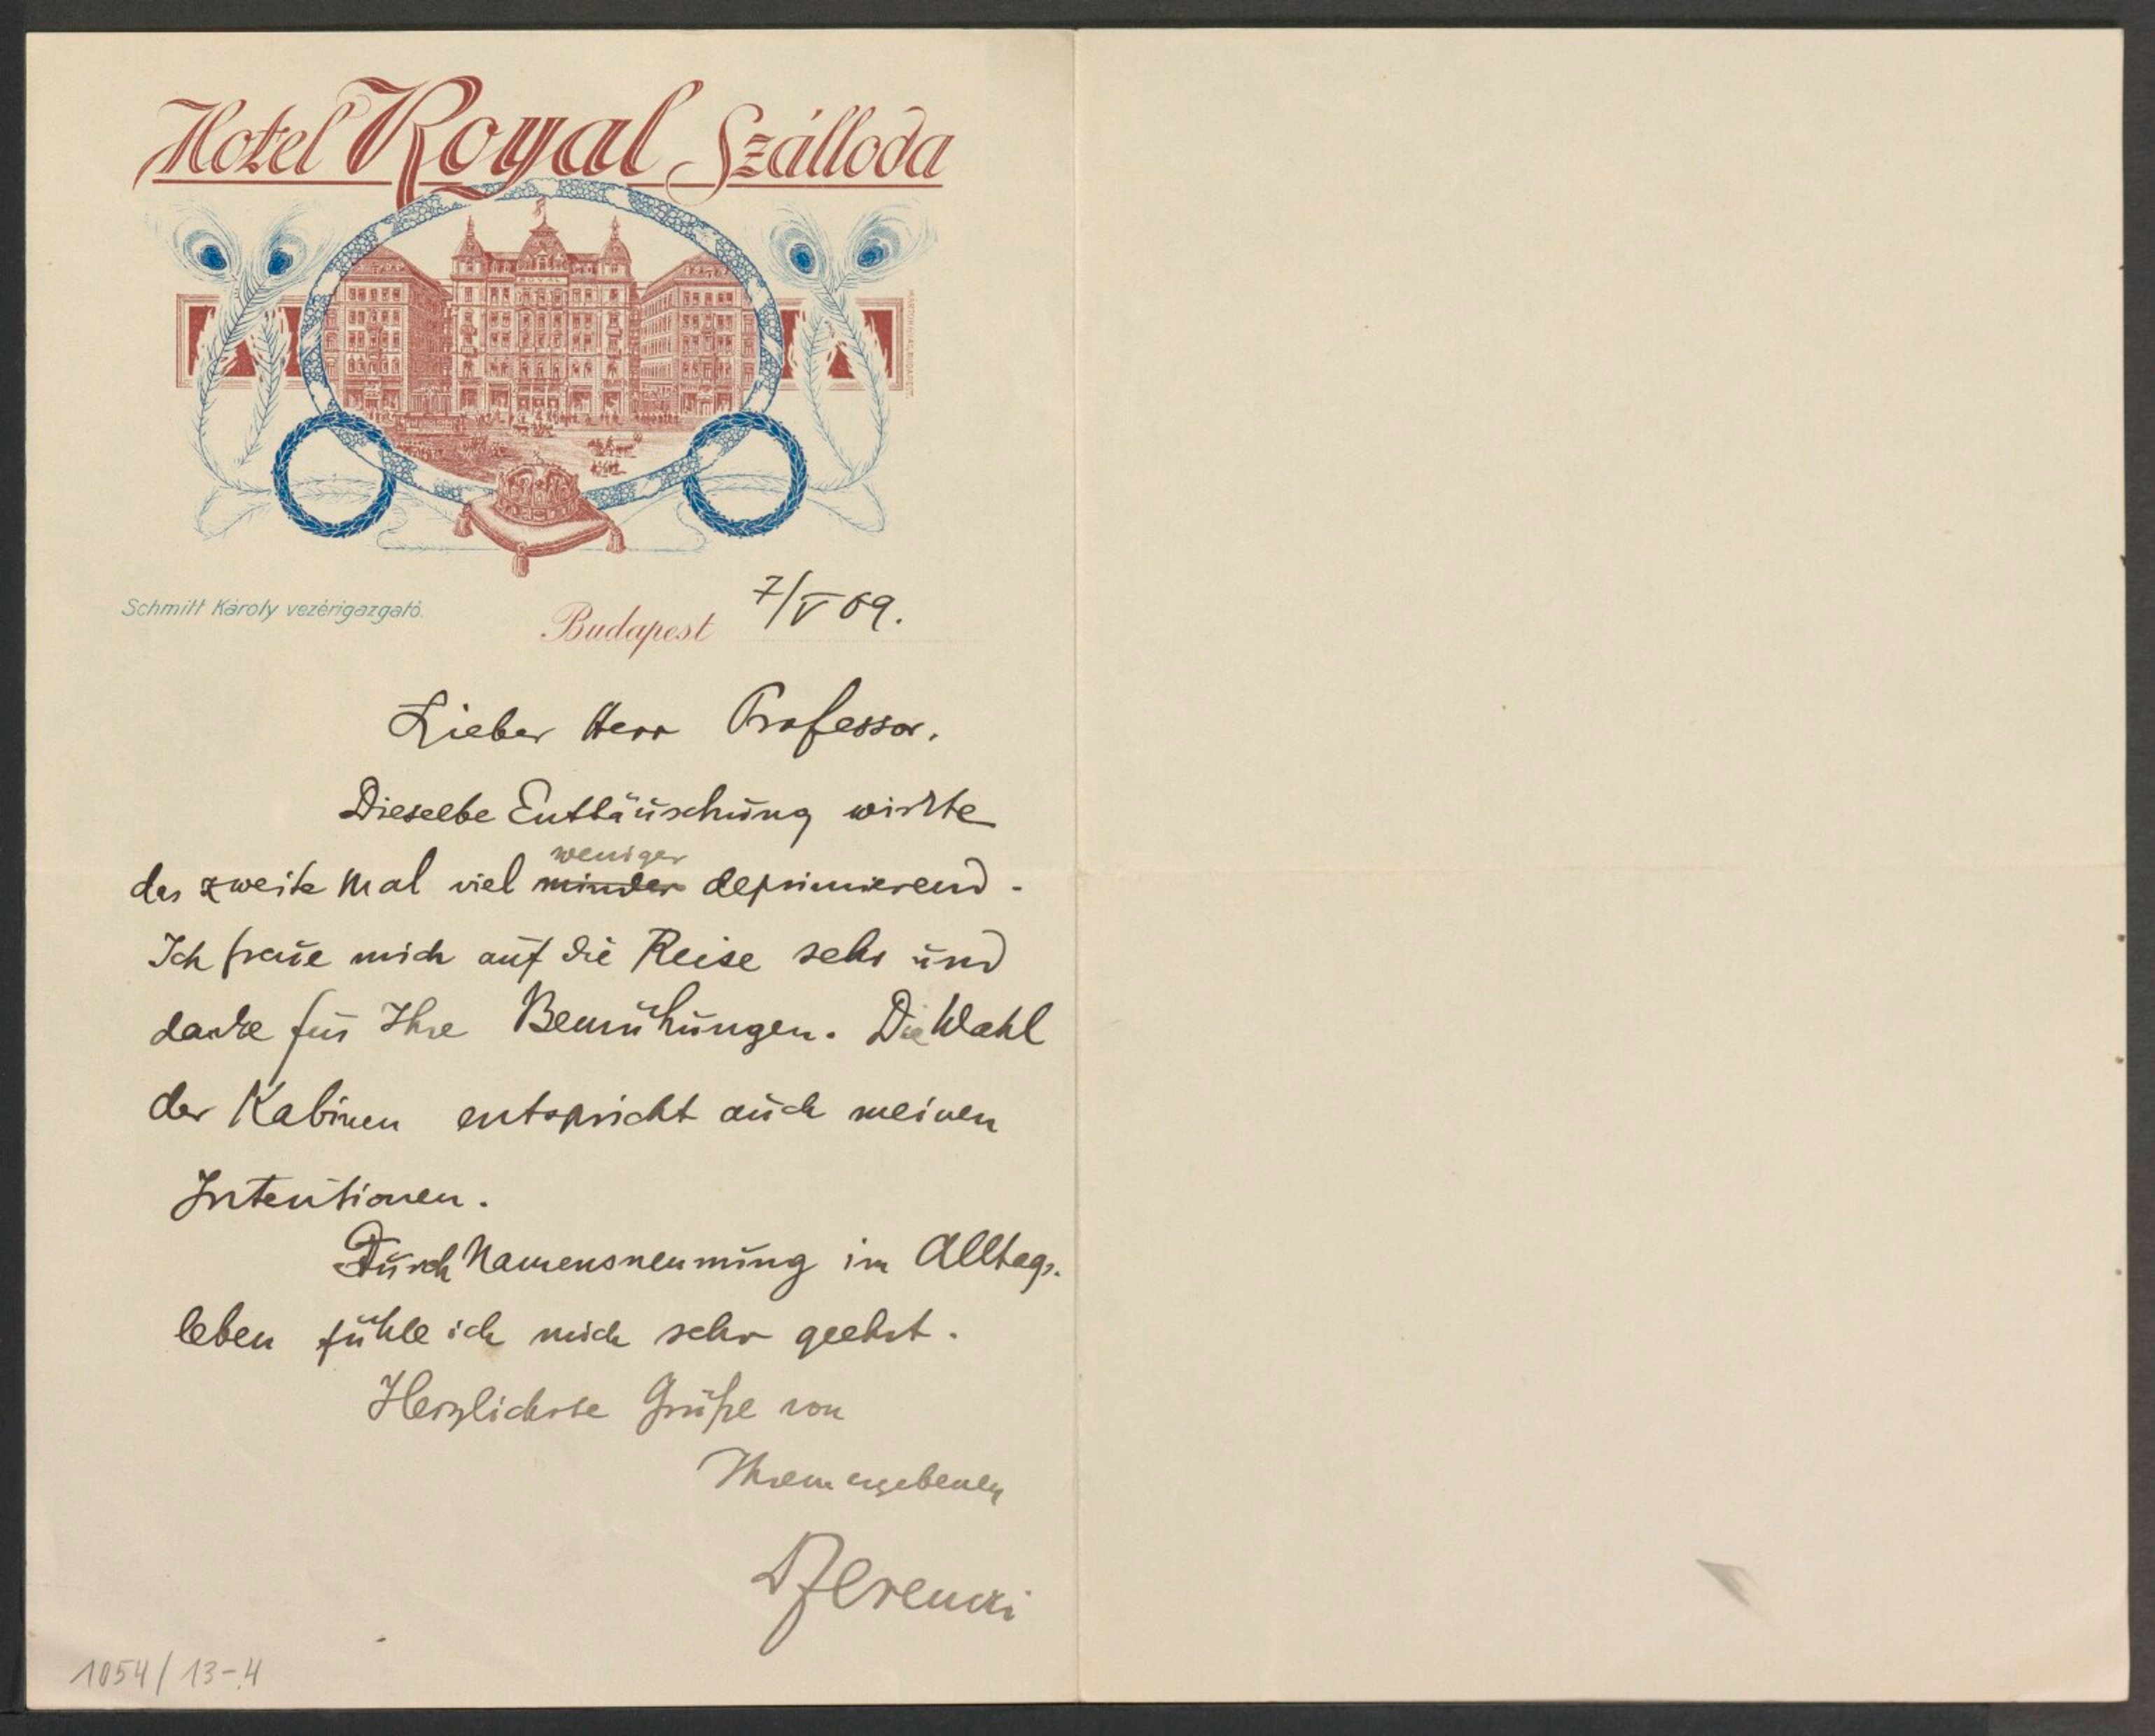 Hotel Royal Szálloda
Schmitt Károly vezérigazgató.
Budapest 7/V 09.
Lieber Herr Professor.
Dieselbe Enttäuschung wirkte
das zweite Mal viel minder weniger deprimierend.
Ich freue mich auf die Reise sehr und
danke für Ihre Bemühungen. Die Wahl
der Kabinen entspricht auch meinen
Intentionen.
Durch Namensnennung im Alltags-
leben fühle ich mich sehr geehrt.
Herzlichste Grüße von
Ihrem ergebenen
DFerenczi
1054/13-4